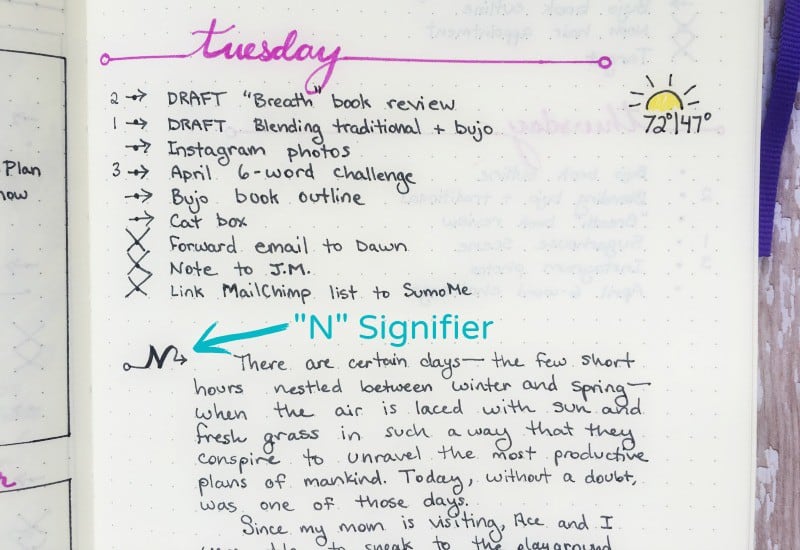 tuesday
2 → DRAFT "Breath" book review
1 → DRAFT Blending traditional + bujo
→ Instagram photos
3 → April 6-word challenge
→ Bujo book outline
→ Cat box
X Forward email to Dawn
X Note to J.M.
X Link MailChimp list to SumoMe
72°|47°
"N" Signifier
N
There are certain days— the few short
hours nestled between winter and spring—
when the air is laced with sun and
fresh grass in such a way that they
conspire to unravel the most productive
plans of mankind. Today, without a doubt,
was one of those days.
Since my mom is visiting, Ace and I
to speak to the playground
Plan
now